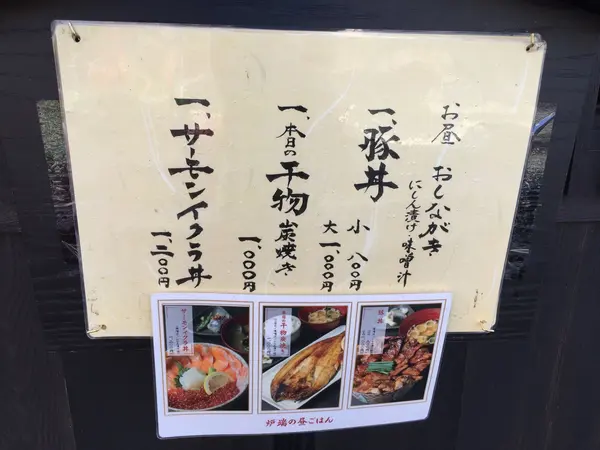 お昼 おしながき
にしん漬け・味噌汁
一、豚丼
小 八〇〇円
大 一、〇〇〇円
一、本日の干物炭焼き
一、〇〇〇円
一、サーモンイクラ丼
一、三〇〇円
サーモンイクラ丼
干物炭焼き
豚丼
炉璃の昼ごはん